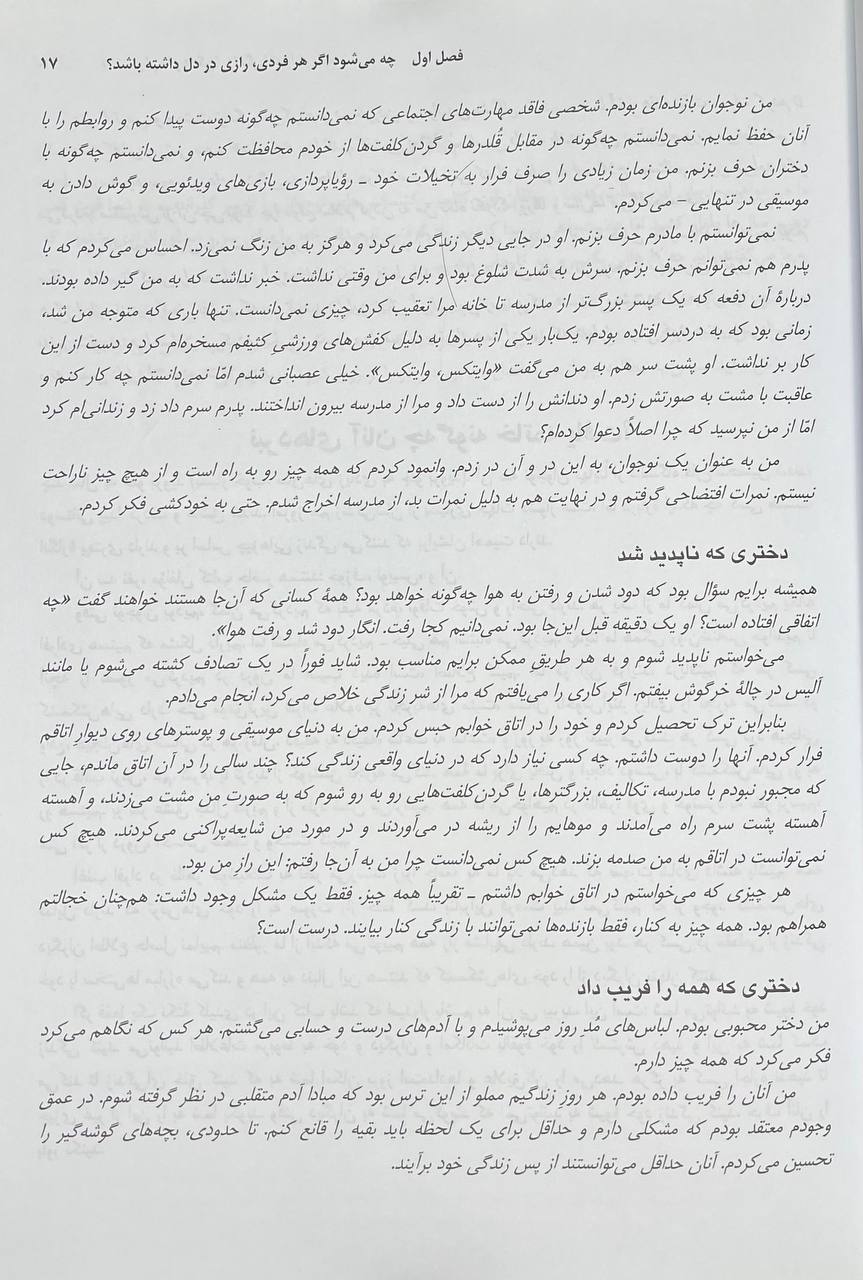 فصل اول   چه می‌شود اگر هر فردی، رازی در دل داشته باشد؟   ۱۷
من نوجوان بازنده‌ای بودم. شخصی فاقد مهارت‌های اجتماعی که نمی‌دانستم چه‌گونه دوست پیدا کنم و روابطم را با
آنان حفظ نمایم. نمی‌دانستم چه‌گونه در مقابل قُلدرها و گردن‌کلفت‌ها از خودم محافظت کنم، و نمی‌دانستم چه‌گونه با
دختران حرف بزنم. من زمان زیادی را صرف فرار به تخیلات خود ـ رؤیاپردازی، بازی‌های ویدئویی، و گوش دادن به
موسیقی در تنهایی – می‌کردم.
نمی‌توانستم با مادرم حرف بزنم. او در جایی دیگر زندگی می‌کرد و هرگز به من زنگ نمی‌زد. احساس می‌کردم که با
پدرم هم نمی‌توانم حرف بزنم. سرش به شدت شلوغ بود و برای من وقتی نداشت. خبر نداشت که به من گیر داده بودند.
دربارهٔ آن دفعه که یک پسر بزرگ‌تر از مدرسه تا خانه مرا تعقیب کرد، چیزی نمی‌دانست. تنها باری که متوجه من شد،
زمانی بود که به دردسر افتاده بودم. یک‌بار یکی از پسرها به دلیل کفش‌های ورزشیِ کثیفم مسخره‌ام کرد و دست از این
کار بر نداشت. او پشت سر هم به من می‌گفت «وایتکس، وایتکس». خیلی عصبانی شدم امّا نمی‌دانستم چه کار کنم و
عاقبت با مشت به صورتش زدم. او دندانش را از دست داد و مرا از مدرسه بیرون انداختند. پدرم سرم داد زد و زندانی‌ام کرد
امّا از من نپرسید که چرا اصلاً دعوا کرده‌ام؟
من به عنوان یک نوجوان، به این در و آن در زدم. وانمود کردم که همه چیز رو به راه است و از هیچ چیز ناراحت
نیستم. نمرات افتضاحی گرفتم و در نهایت هم به دلیل نمرات بد، از مدرسه اخراج شدم. حتی به خودکشی فکر کردم.
دختری که ناپدید شد
همیشه برایم سؤال بود که دود شدن و رفتن به هوا چه‌گونه خواهد بود؟ همهٔ کسانی که آن‌جا هستند خواهند گفت «چه
اتفاقی افتاده است؟ او یک دقیقه قبل این‌جا بود. نمی‌دانیم کجا رفت. انگار دود شد و رفت هوا».
می‌خواستم ناپدید شوم و به هر طریقِ ممکن برایم مناسب بود. شاید فوراً در یک تصادف کشته می‌شوم یا مانند
آلیس در چالهٔ خرگوش بیفتم. اگر کاری را می‌یافتم که مرا از شر زندگی خلاص می‌کرد، انجام می‌دادم.
بنابراین ترک تحصیل کردم و خود را در اتاق خوابم حبس کردم. من به دنیای موسیقی و پوسترهای روی دیوارِ اتاقم
فرار کردم. آنها را دوست داشتم. چه کسی نیاز دارد که در دنیای واقعی زندگی کند؟ چند سالی را در آن اتاق ماندم، جایی
که مجبور نبودم با مدرسه، تکالیف، بزرگترها، یا گردن‌کلفت‌هایی رو به رو شوم که به صورت من مشت می‌زدند، و آهسته
آهسته پشت سرم راه می‌آمدند و موهایم را از ریشه در می‌آوردند و در مورد من شایعه‌پراکنی می‌کردند. هیچ کس
نمی‌توانست در اتاقم به من صدمه بزند. هیچ کس نمی‌دانست چرا من به آن‌جا رفتم؛ این رازِ من بود.
هر چیزی که می‌خواستم در اتاق خوابم داشتم ـ تقریباً همه چیز. فقط یک مشکل وجود داشت: هم‌چنان خجالتم
همراهم بود. همه چیز به کنار، فقط بازنده‌ها نمی‌توانند با زندگی کنار بیایند. درست است؟
دختری که همه را فریب داد
من دختر محبوبی بودم. لباس‌های مُدِ روز می‌پوشیدم و با آدم‌های درست و حسابی می‌گشتم. هر کس که نگاهم می‌کرد
فکر می‌کرد که همه چیز دارم.
من آنان را فریب داده بودم. هر روزِ زندگیم مملو از این ترس بود که مبادا آدم متقلبی در نظر گرفته شوم. در عمق
وجودم معتقد بودم که مشکلی دارم و حداقل برای یک لحظه باید بقیه را قانع کنم. تا حدودی، بچه‌های گوشه‌گیر را
تحسین می‌کردم. آنان حداقل می‌توانستند از پس زندگی خود برآیند.